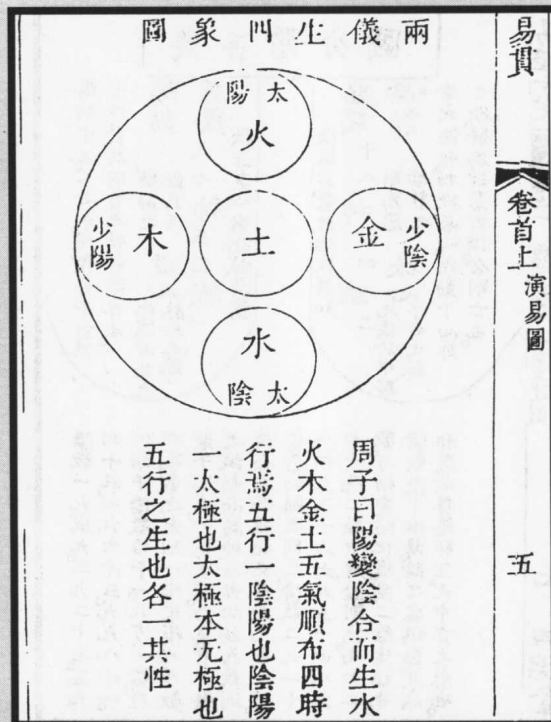 易貫
卷首上
演易圖
五
兩儀生四象圖
太陽
火
少陰
金
土
木
少陽
水
太陰
周子曰陽變陰合而生水
火木金土五氣順布四時
行焉五行一陰陽也陰陽
一太極也太極本无極也
五行之生也各一其性